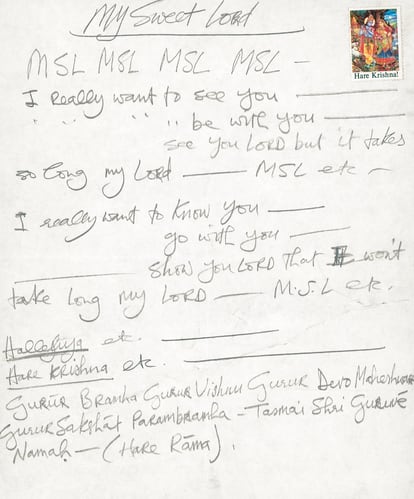 My Sweet Lord
Hare Krishna!
MSL MSL MSL MSL –
I really want to see you ———
" " " " be with you ———
see you LORD but it takes
so long my Lord —— MSL etc –
I really want to Know you ———
go with you ———
——— show you LORD that it won't
take long my LORD —— M.S.L etc.
Halleluja etc. ———
Hare Krishna etc. ———
Gurur Bramha Gurur Vishnu Gurur Devo Maheshwara
Gurur Sakshāt Parambramha – Tasmai Shri Guruve
Namah — (Hare Rāma).